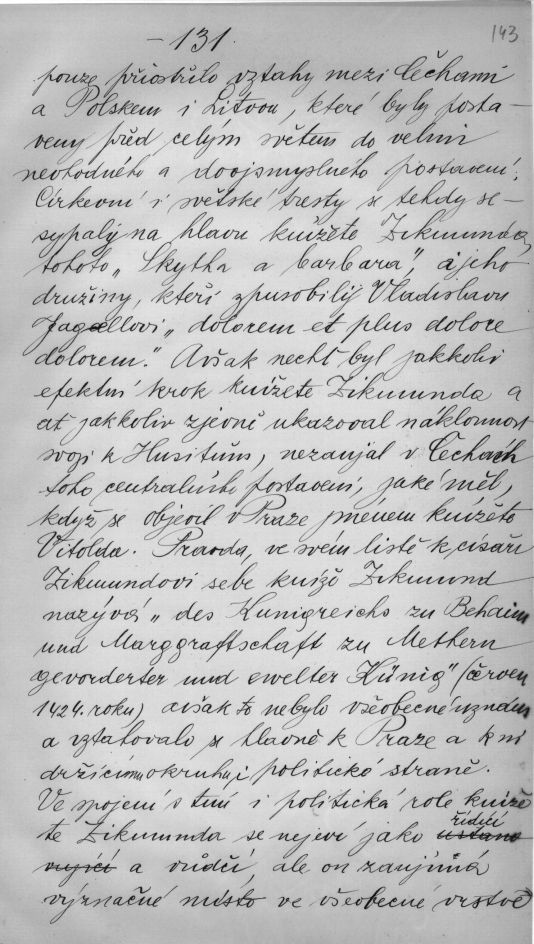 143
- 131.
pouze přiostřilo vztahy mezi Čechami
a Polskem i Litvou, které byly posta-
veny před celým světem do velmi
nevhodného a dvojsmyslného postavení.
Církevní i světské tresty se tehdy se-
sypaly na hlavu knížete Zikmunda,
tohoto „Skytha a barbara", a jeho
družiny, kteří způsobily Vladislavu
Jagellovi „dolorem et plus dolore
dolorem." Avšak nechť byl jakkoliv
efektní krok knížete Zikmunda a
ať jakkoliv zjevně ukazoval náklonnost
svoji k Husitům, nezaujal v Čechách
toho centrálního postavení, jaké měl,
když se objevil v Praze jménem knížete
Vitolda. Pravda, ve svém listě k císaři
Zikmundovi sebe kníže Zikmund
nazývá „des Kunigreichs zu Behaim
und Marggraftschaft zu Methern
gevorderter und ewelter Künig" (červen
1424. roku) avšak to nebylo všeobecné uznání
a vztahovalo se hlavně k Praze a k ní
držícímu okruhu i politické straně.
Ve spojení s tím i politická role kníže-
te Zikmunda se nejeví jako řídící
a vůdčí, ale on zaujímá
význačné místo ve všeobecné vrstvě